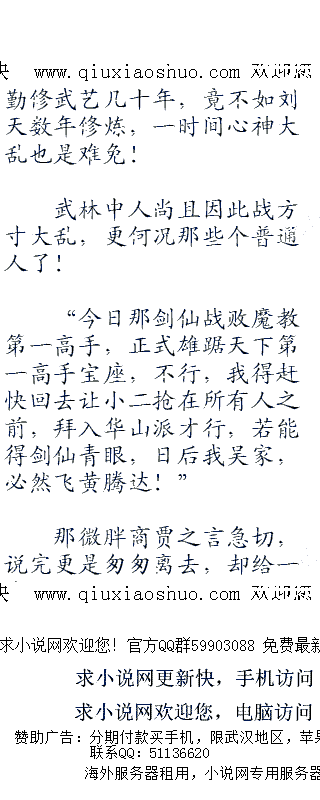 www.qiuxiaoshuo.com 欢迎您
勤修武艺几十年，竟不如刘
天数年修炼，一时间心神大
乱也是难免！
武林中人尚且因此战方
寸大乱，更何况那些个普通
人了！
“今日那剑仙战败魔教
第一高手，正式雄踞天下第
一高手宝座，不行，我得赶
快回去让小二抢在所有人之
前，拜入华山派才行，若能
得剑仙青眼，日后我吴家，
必然飞黄腾达！”
那微胖商贾之言急切，
说完更是匆匆离去，却给一
www.qiuxiaoshuo.com 欢迎您
求小说网欢迎您! 官方QQ群59903088 免费最新
求小说网更新快，手机访问
求小说网欢迎您，电脑访问
赞助广告：分期付款买手机，限武汉地区，苹果
联系QQ：51136620
海外服务器租用，小说网专用服务器